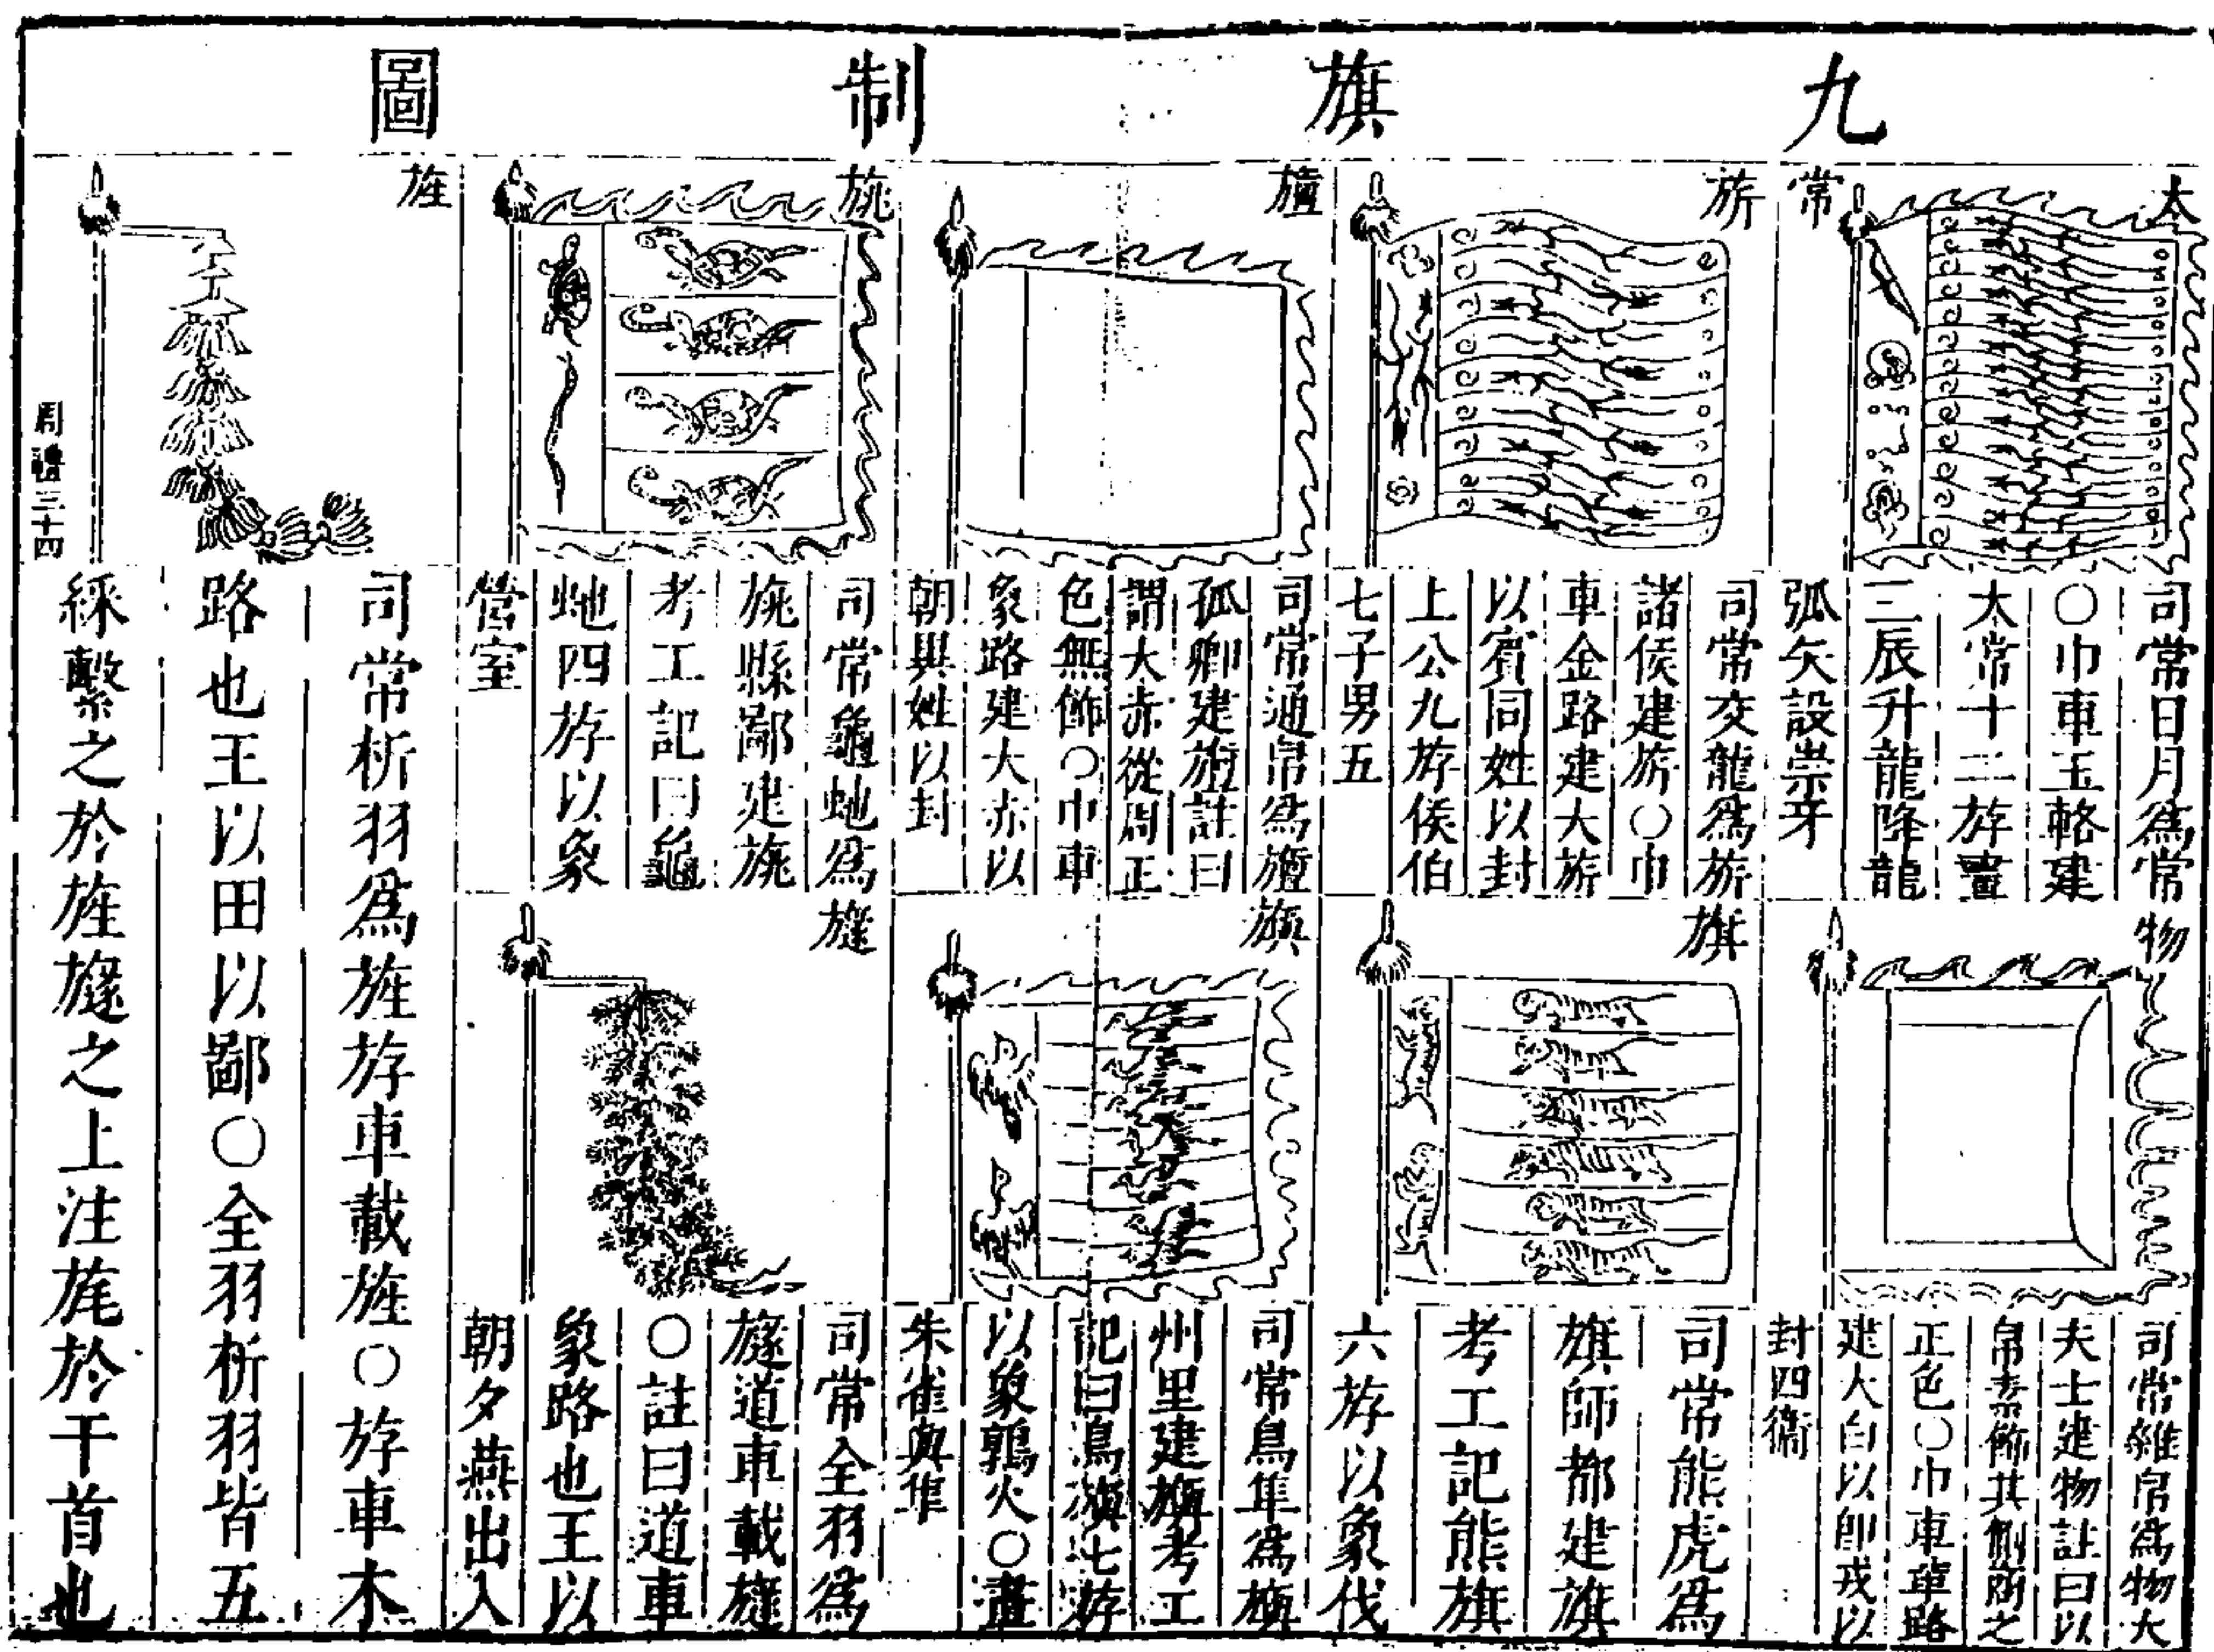 九旗制圖
太常
司常日月爲常
○巾車玉輅建
太常十二斿畫
三辰升龍降龍
弧矢設崇牙
旂
司常交龍爲旂
諸侯建旂○巾
車金路建大旂
以賓同姓以封
上公九斿侯伯
七子男五
旜
司常通帛爲旜
孤卿建旜註曰
謂大赤從周正
色無飾○巾車
象路建大赤以
朝異姓以封
旐
司常龜虵爲
旐縣鄙建旐
考工記曰龜
虵四斿以象
營室
旌
司常析羽爲旌斿車載旌○斿車木
路也王以田以鄙○全羽析羽皆五
綵繫之於旌旞之上注旄於干首也
物
司常雜帛爲物大
夫士建物註曰以
帛素飾其側商之
正色○巾車革路
建大白以即戎以
封四衛
旗
司常熊虎爲
旗師都建旗
考工記熊旗
六斿以象伐
旟
司常鳥隼爲旟
州里建旟考工
記曰鳥旟七斿
以象鶉火○畫
朱雀與隼
旞
司常全羽爲
旞道車載旞
○註曰道車
象路也王以
朝夕燕出入
周禮三十四